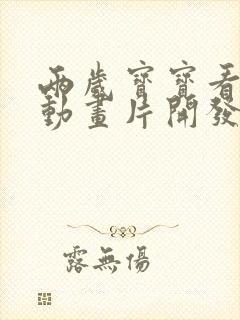 兩歲寶寶看
動畫片開發
露無傷